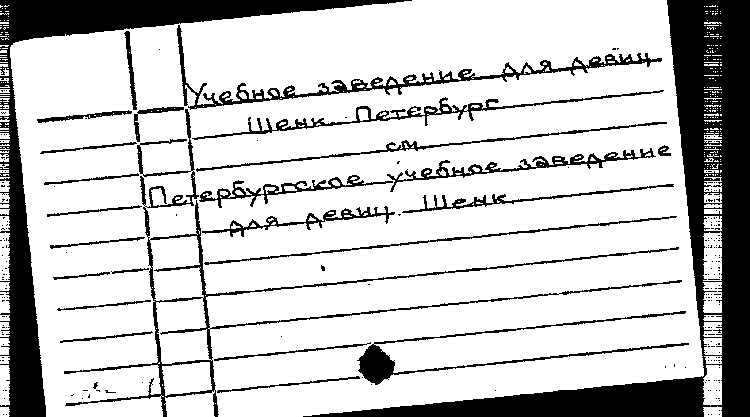 Учебное заведение для девиц
Шенк. Петербург
см.
Петербургское учебное заведение
для девиц Шенк